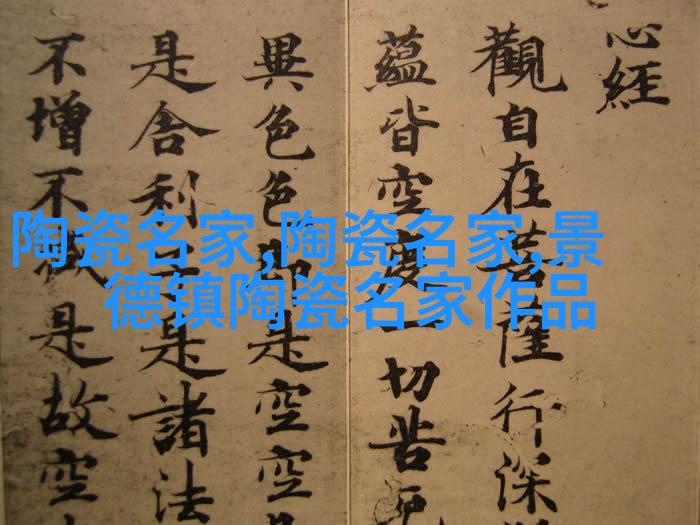 心經
觀自在菩薩行深
蘊皆空度一切苦厄
異色色即是空空
是舍利子是諸法
不增不減是故空
陶瓷名家,陶瓷名家,景
德镇陶瓷名家作品